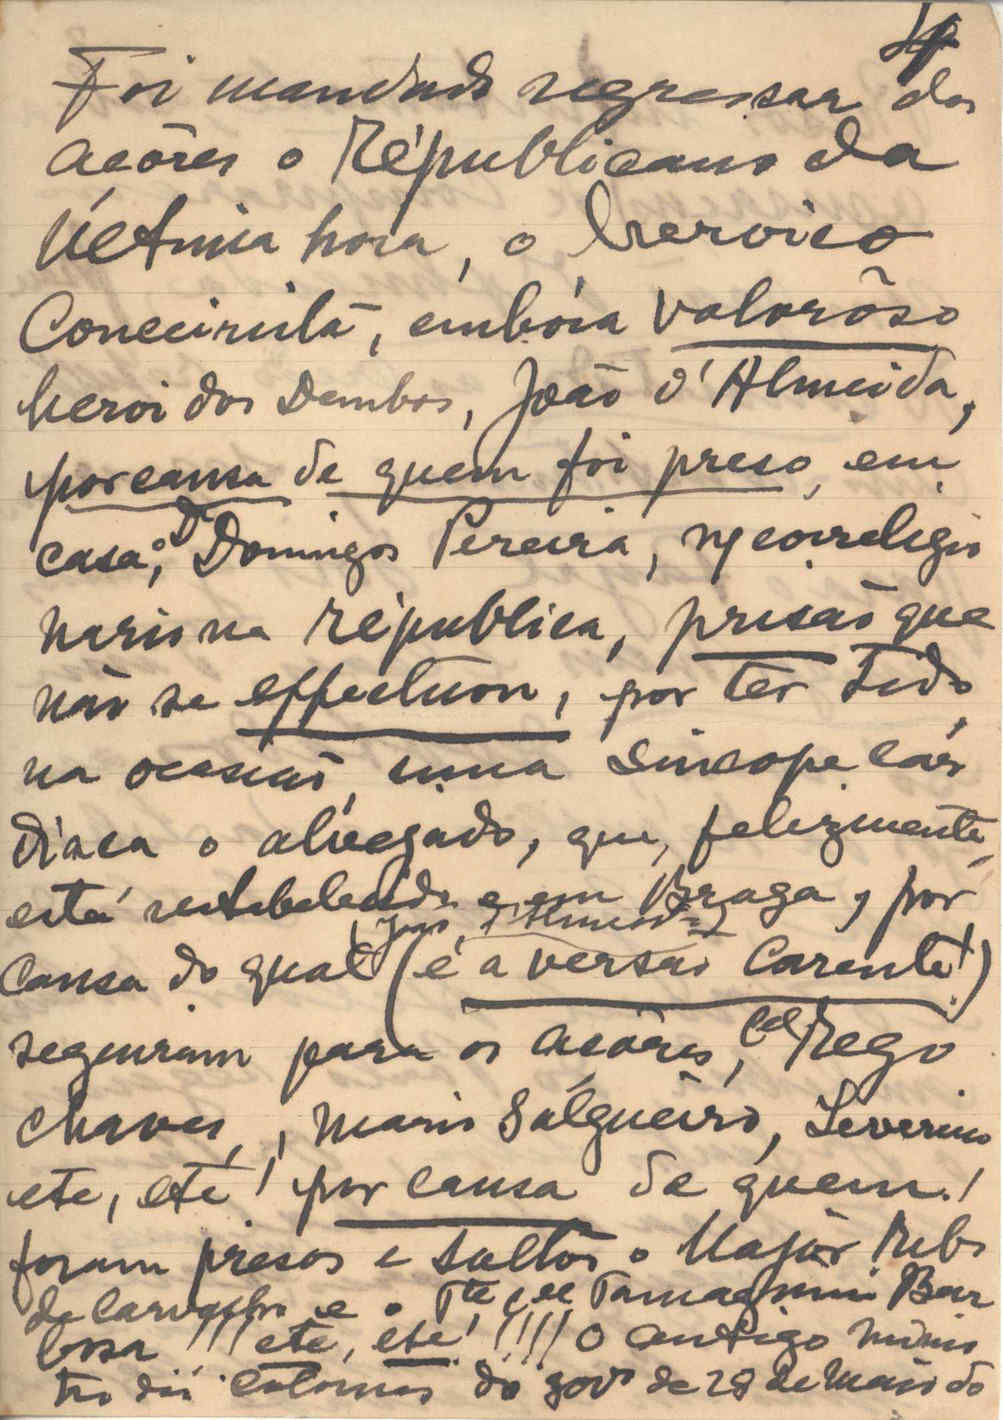 4
Foi mandado regressar dos
Açôres o Républicano da
Última hora, o heroico
emboia valorôso
heroi dos Dembos, João d'Almeida,
por causa de quem foi preso, em
casa, Dr Domingos Pereira, correligio
nario na república, prisão que
não se effectuou, por ter tido,
na ocasião, uma sincope cár
díaca o alvejado, que, felizmente,
está restabelecido e em Braga, e por
causa do qual (João d'Almeida) (é a versão corrente!)
seguiram para os Açôres, Cel Rego
Chaves, Mario Sálgueiro, Severino
etc, etc! por causa de quem!
foram presos e soltos o Major Ribº
de Carvalho e o Tte Cel Tamagnini Bar
bosa !!! etc, etc! !!!! O antigo minis
tro das Colonias do govº de 28 de Maio do